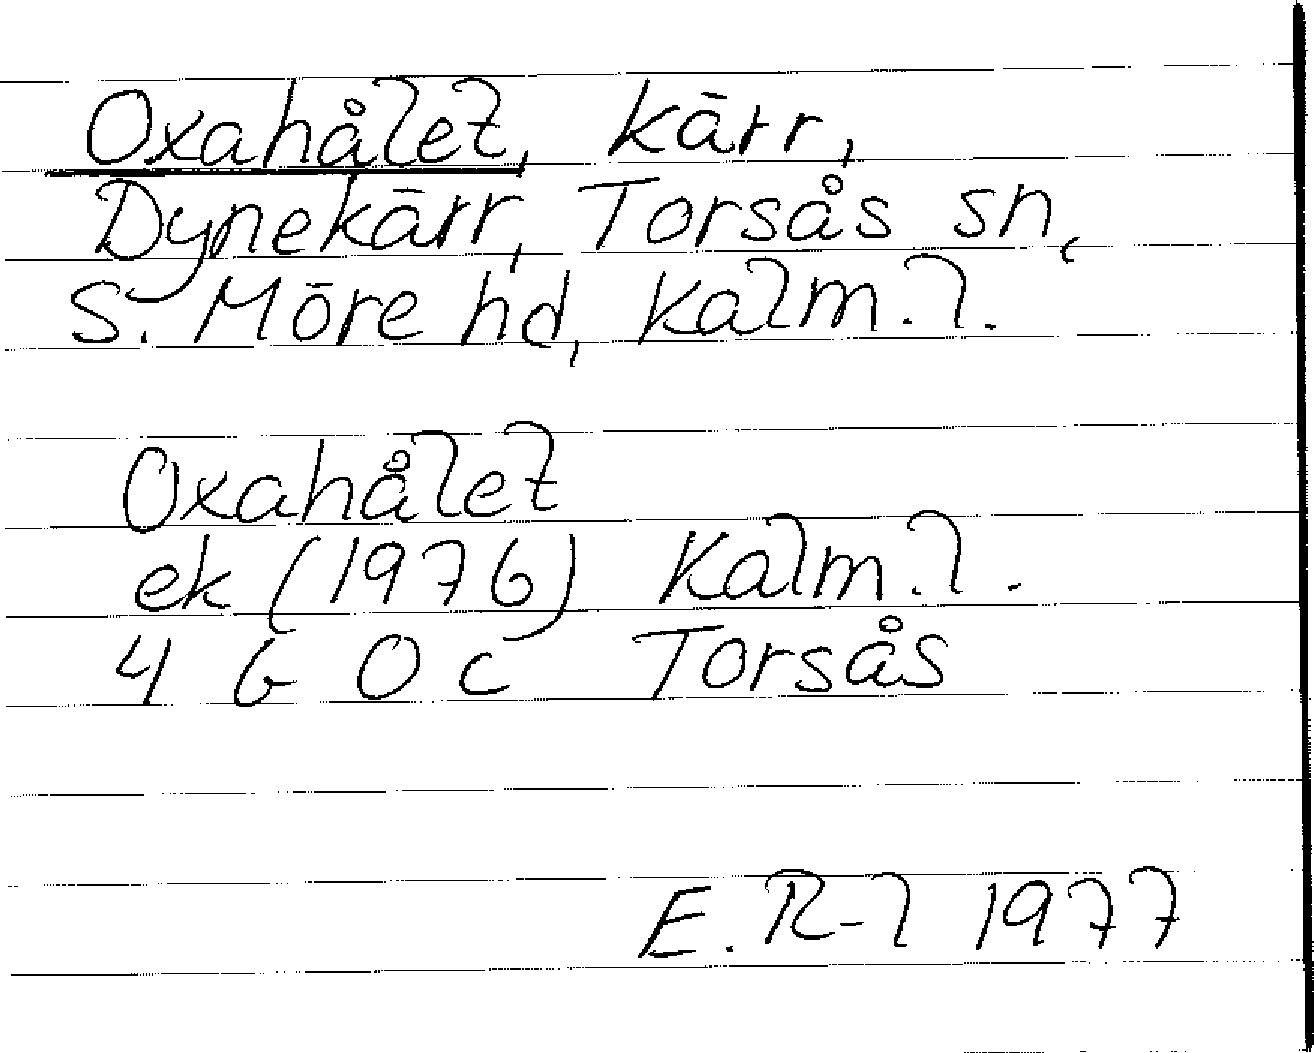 Oxahålet, kärr,
Dynekärr, Torsås sn,
S. Möre hd, Kalm.l.
Oxahålet
ek (1976) Kalm.l.
4 G 0 c Torsås
E. R-l 1977